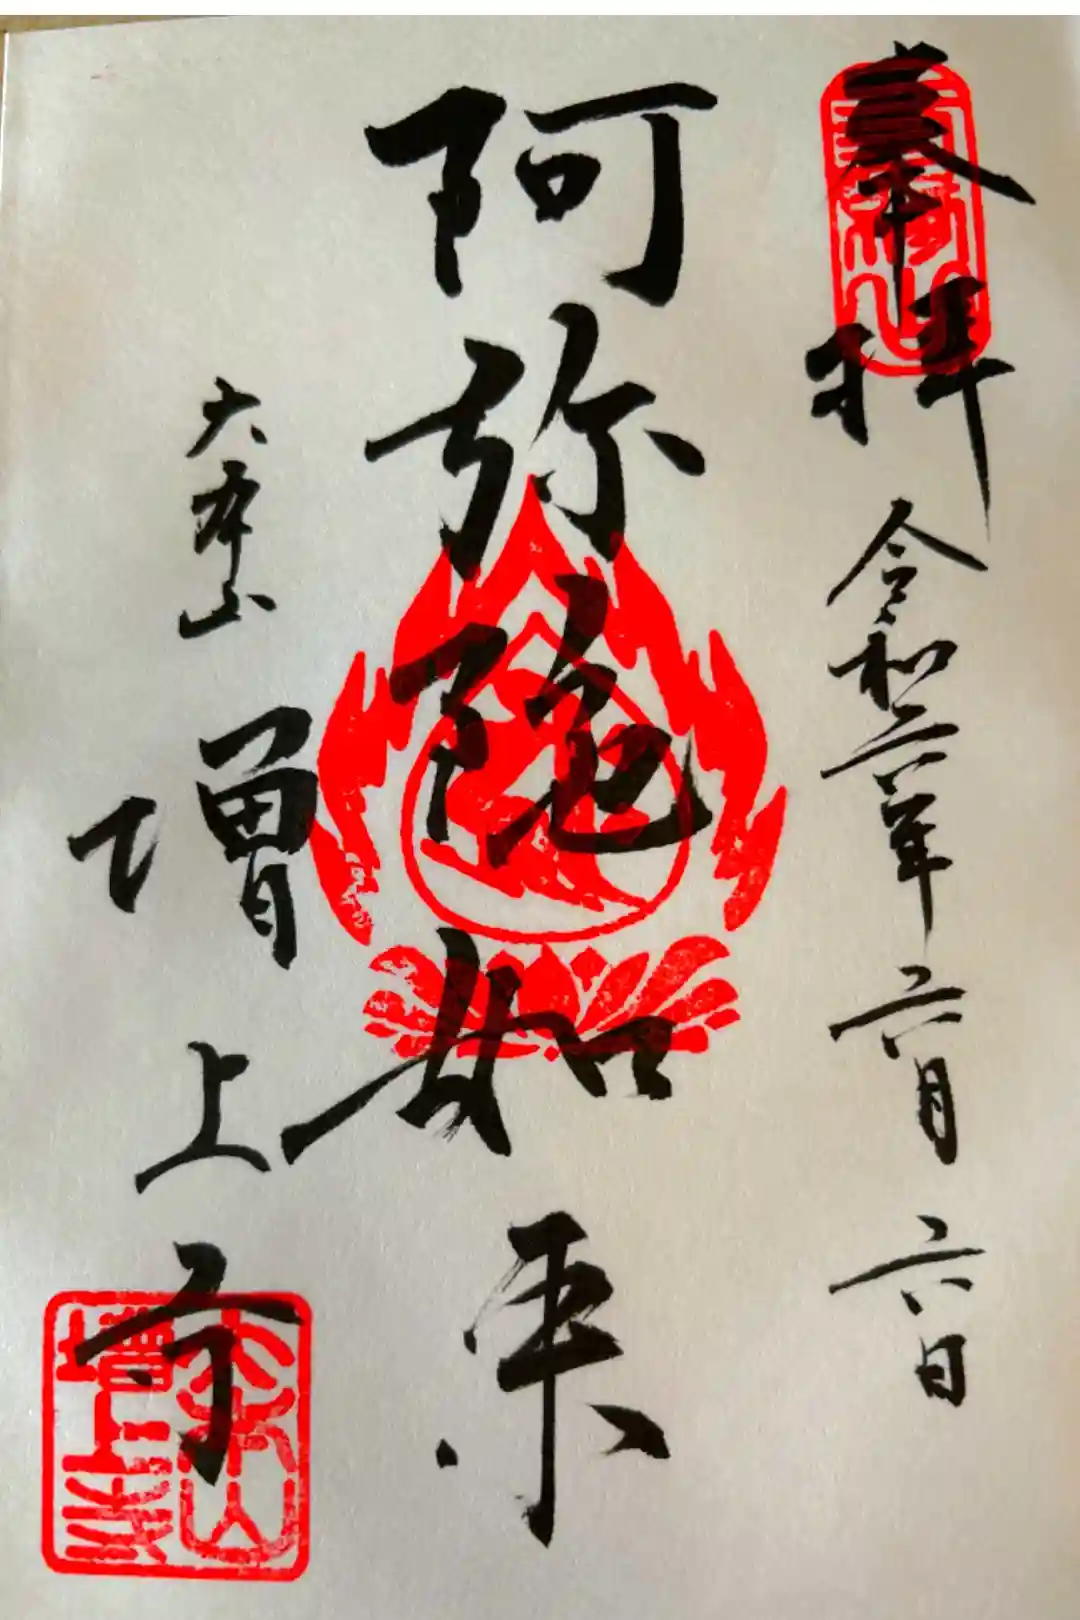 奉拝 令和六年六月六日
阿弥陀如来
大本山 増上寺
大本山
増上寺